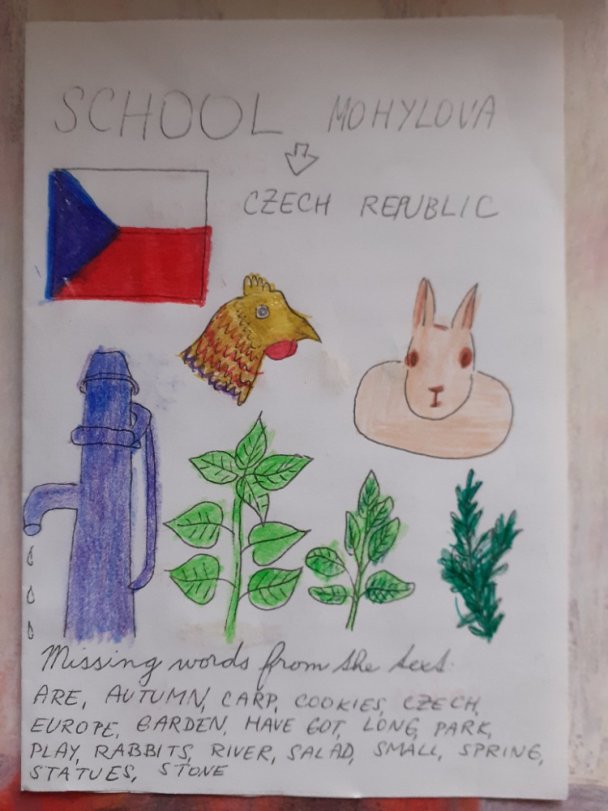 SCHOOL MOHYLOVA
CZECH REPUBLIC
Missing words from the text:
ARE, AUTUMN, CARP, COOKIES, CZECH,
EUROPE, GARDEN, HAVE GOT, LONG, PARK,
PLAY, RABBITS, RIVER, SALAD, SMALL, SPRING,
STATUES, STONE